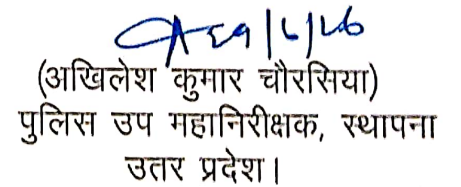 (अखिलेश कुमार चौरसिया)
पुलिस उप महानिरीक्षक, स्थापना
उतर प्रदेश।